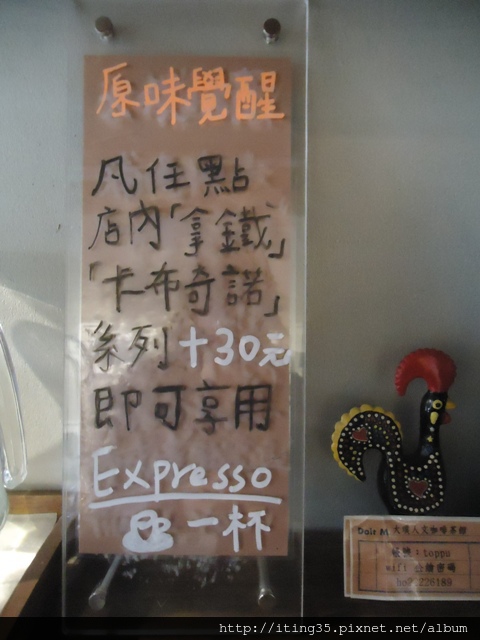 原味覺醒
凡任點
店內「拿鐵」
「卡布奇諾」
系列+30元
即可享用
Expresso
一杯
帳號：toppu
http://iting35.pixnet.net/album